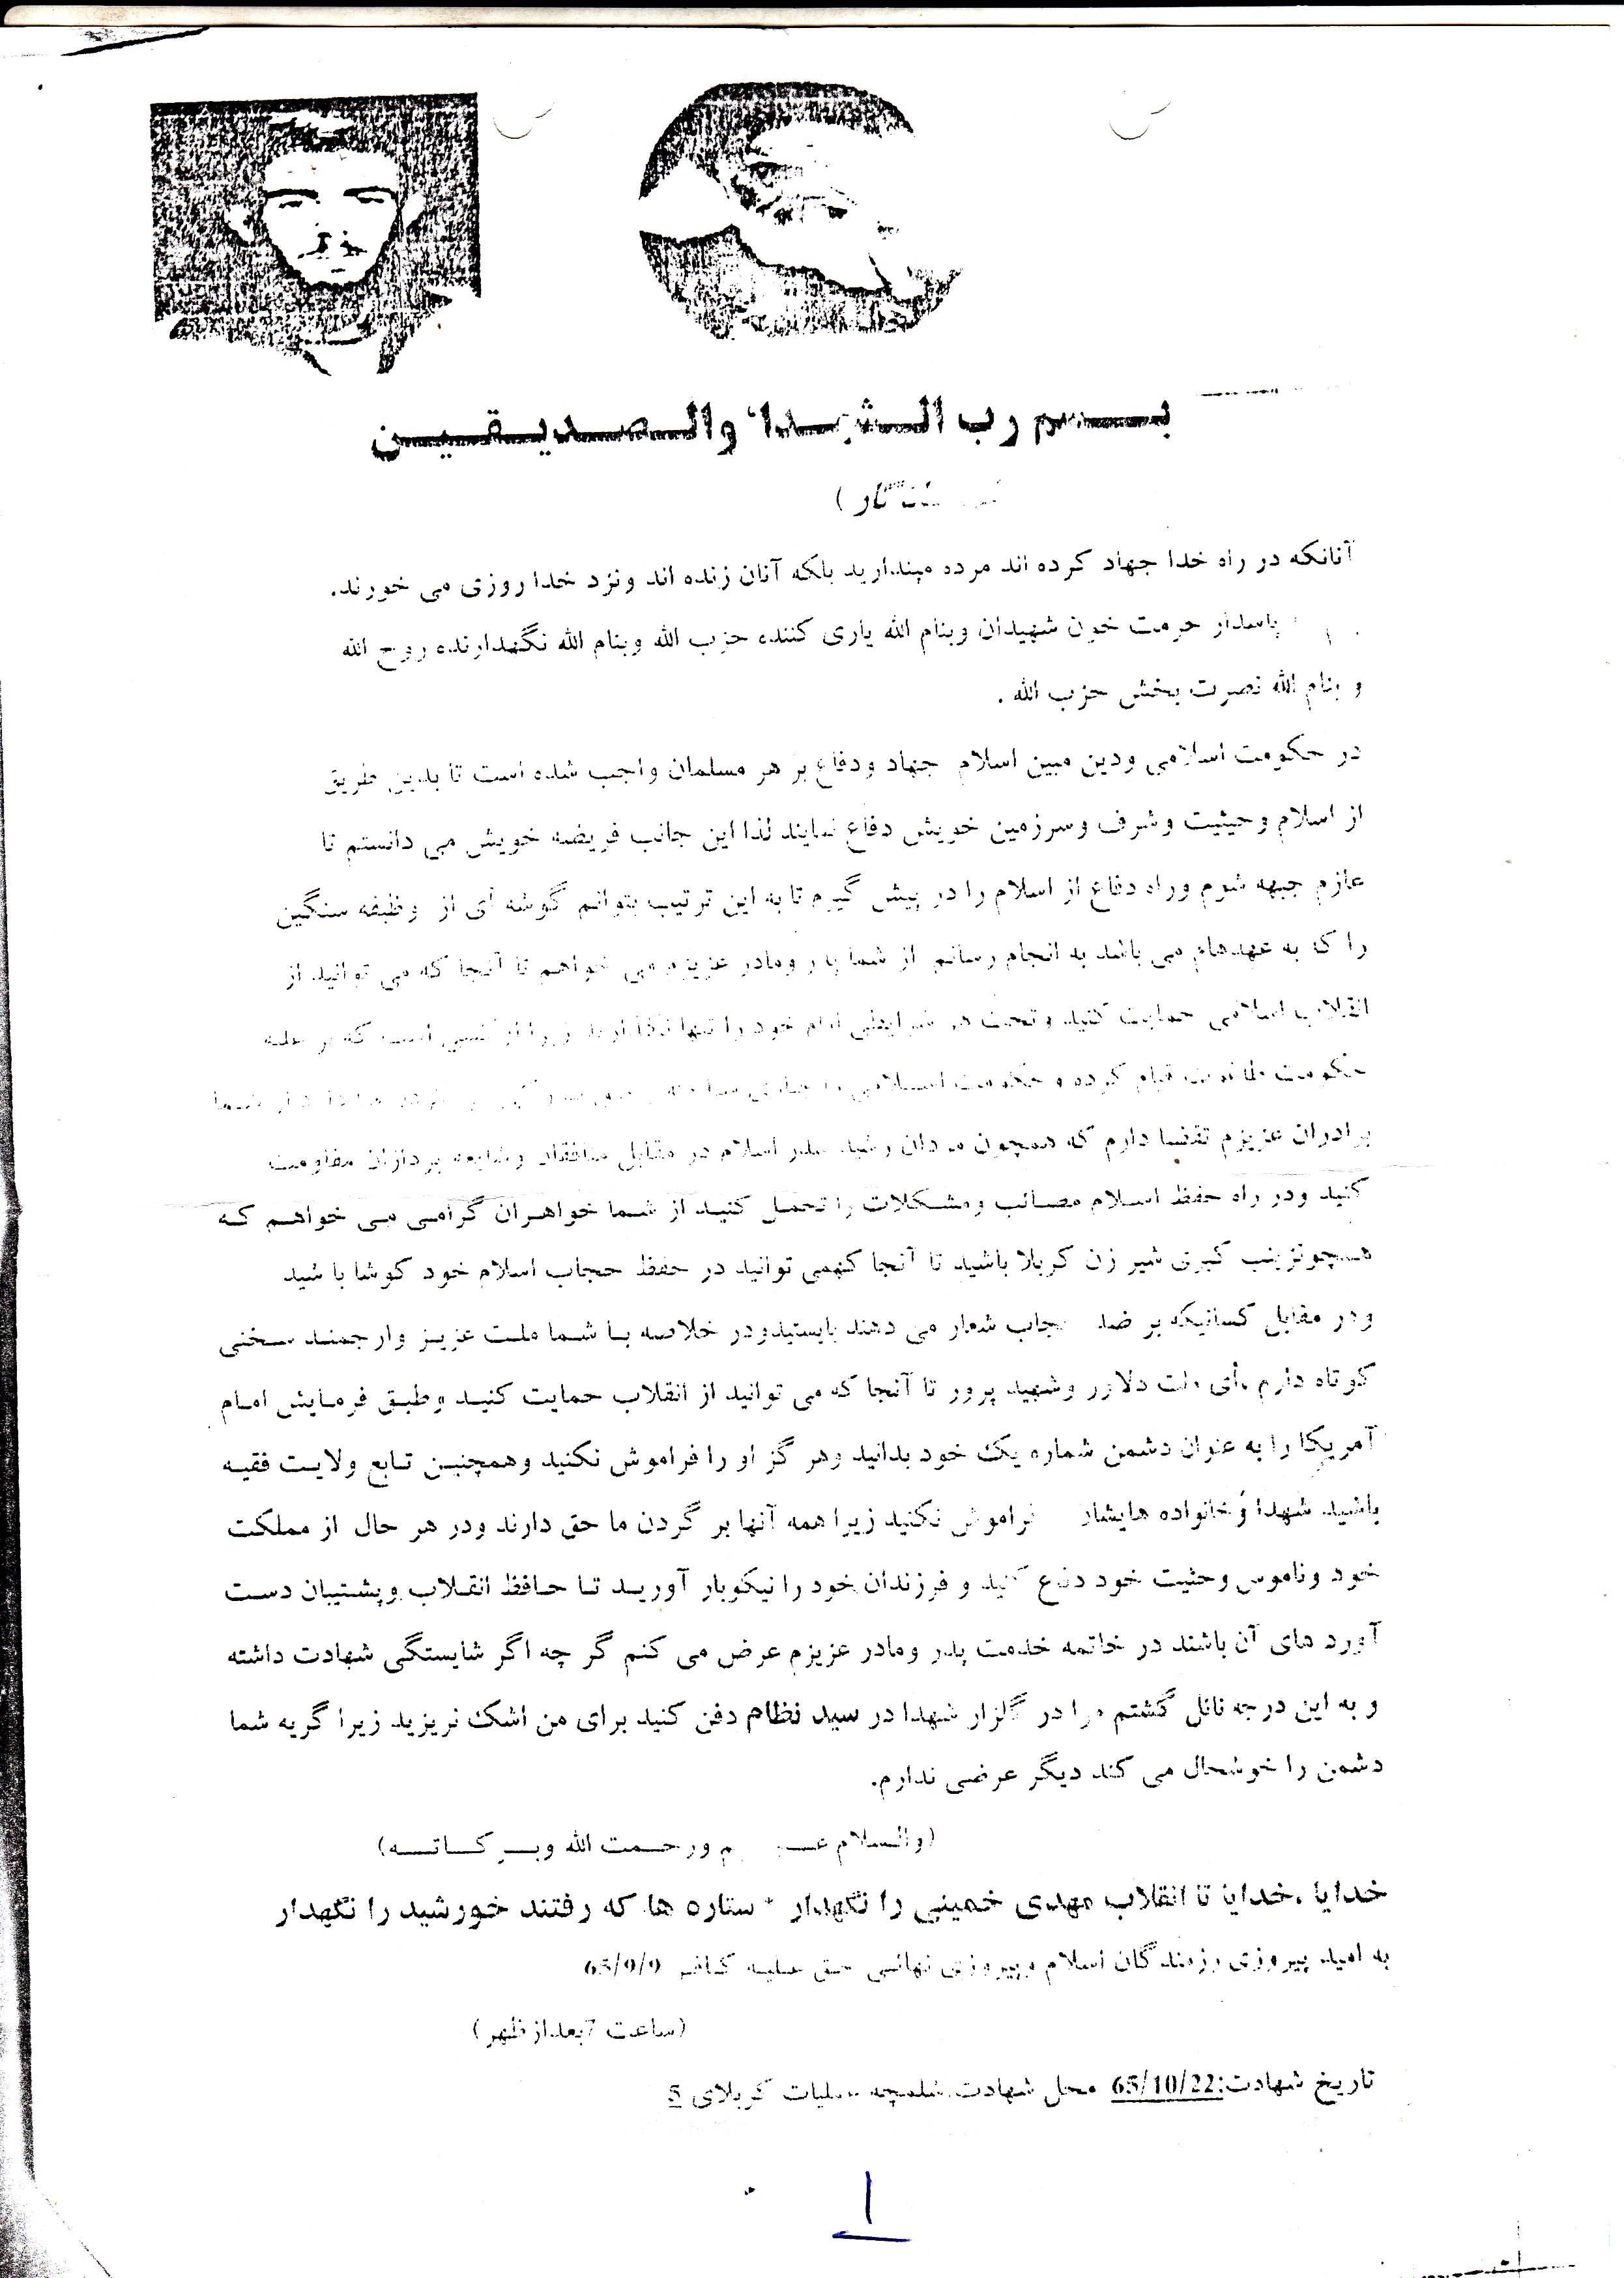 بسم رب الشهداء والصدیقین
آنانکه در راه خدا جهاد کرده اند مرده مپندارید بلکه آنان زنده اند ونزد خدا روزی می خورند.
پاسدار حرمت خون شهیدان وبنام الله یاری کننده حزب الله وبنام الله نگهدارنده روح الله
و بنام الله نصرت بخش حزب الله .
در حکومت اسلامی ودین مبین اسلام جهاد ودفاع بر هر مسلمان واجب شده است تا بدین طریق
از اسلام وحیثیت وشرف وسرزمین خویش دفاع نمایند لذا این جانب فریضه خویش می دانستم تا
عازم جبهه شوم وراه دفاع از اسلام را در پیش گیرم تا به این ترتیب بتوانم گوشه ای از وظیفه سنگین
را که به عهدهام می باشد به انجام رسانم از شما پدر ومادر عزیزم می خواهم تا آنجا که می توانید از
انقلاب اسلامی حمایت کنید وتحت هر شرایطی امام خود را تنها نگذارید زیرا کسی است که بر علیه
حکومت طاغوت قیام کرده و حکومت اسلامی شما
برادران عزیزم تقاضا دارم که همچون مردان رشید صدر اسلام در مقابل منافقان وشایعه پردازان مقاومت
کنید ودر راه حفظ اسلام مصائب ومشکلات را تحمل کنید از شما خواهران گرامی می خواهم که
همچونزینب کبری شیر زن کربلا باشید تا آنجا کهمی توانید در حفظ حجاب اسلام خود کوشا با شید
ودر مقابل کسانیکه بر ضد حجاب شعار می دهند بایستیدودر خلاصه با شما ملت عزیز وارجمند سخنی
کوتاه دارم ،ای ملت دلاور وشهید پرور تا آنجا که می توانید از انقلاب حمایت کنید وطبق فرمایش امام
آمریکا را به عنوان دشمن شماره یک خود بدانید وهر گز او را فراموش نکنید وهمچنین تابع ولایت فقیه
باشید. شهدا وخانواده هایشان فراموش نکنید زیرا همه آنها بر گردن ما حق دارند ودر هر حال از مملکت
خود وناموس وحثیت خود دفاع کنید و فرزندان خود را نیکوبار آورید تا حافظ انقلاب وپشتیبان دست
آورد های آن باشند در خاتمه خدمت پدر ومادر عزیزم عرض می کنم گر چه اگر شایستگی شهادت داشته
و به این درجه نائل گشتم مرا در گلزار شهدا در سید نظام دفن کنید برای من اشک نریزید زیرا گریه شما
دشمن را خوشحال می کند دیگر عرضی ندارم.
(والسلام ورحمت الله وبرکاته)
خدایا ،خدایا تا انقلاب مهدی خمینی را نگهدار * ستاره ها که رفتند خورشید را نگهدار
به امید پیروزی رزمندگان اسلام وپیروزی نهائی حق علیه کافر 65/9/9
(ساعت 7بعداز ظهر)
تاریخ شهادت:65/10/22 محل شهادت شلمچه عملیات کربلای 5
۱